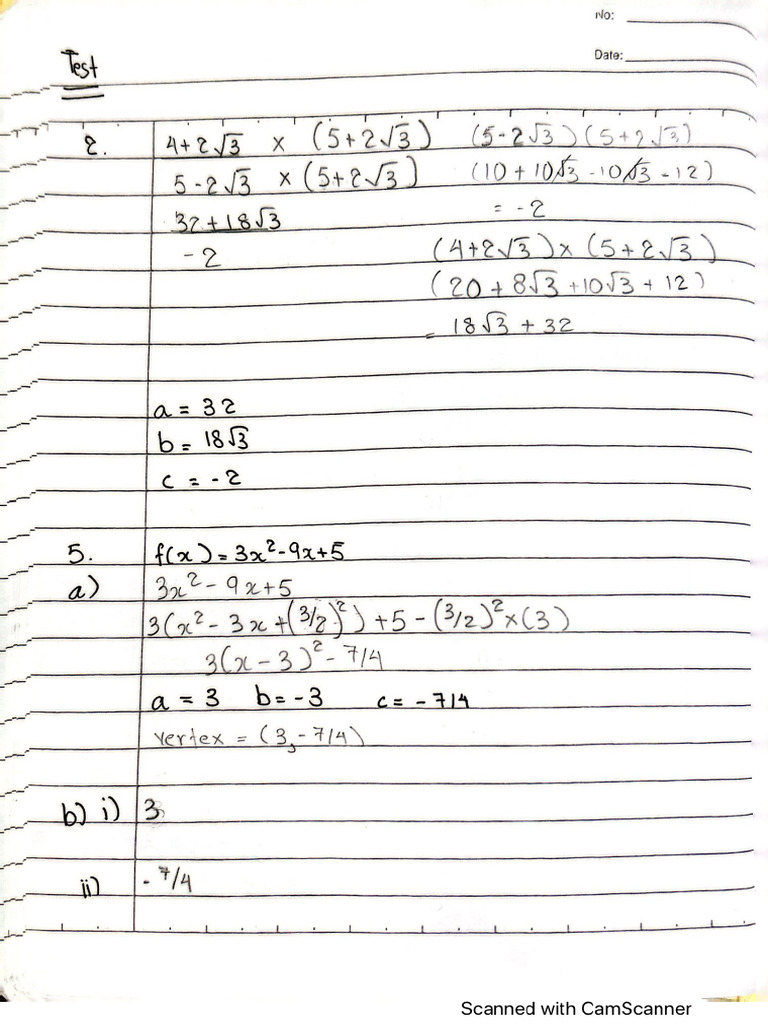 No:
Date:
Test
2. 4+2√3 × (5+2√3) (5-2√3)(5+2√3)
5-2√3 × (5+2√3) (10+10√3-10√3-12)
32+18√3 = -2
-2 (4+2√3)×(5+2√3)
(20+8√3+10√3+12)
= 18√3+32
a = 32
b = 18√3
c = -2
5. f(x)=3x²-9x+5
a) 3x²-9x+5
3(x²-3x+(3/2)²)+5-(3/2)²×(3)
3(x-3)²-7/4
a = 3 b = -3 c = -7/4
vertex = (3,-7/4)
b) i) 3
ii) -7/4
Scanned with CamScanner